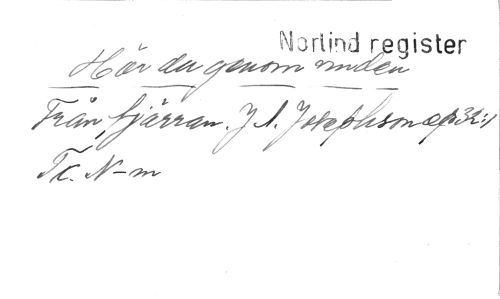 Norlind register
Hör du genom vinden
Från fjärran. J A. Josephson op 32:1
Tr. N-m